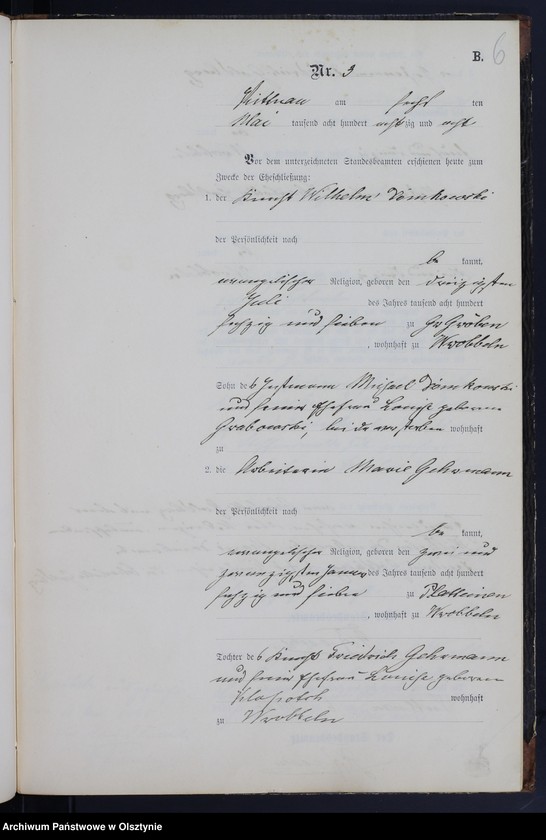 B. 6
Nr. 3
Kittnau am sechs ten
Mai tausend acht hundert achtzig und acht
Vor dem unterzeichneten Standesbeamten erschienen heute zum
Zwecke der Eheschließung:
1. der Knecht Wilhelm Domkowski
der Persönlichkeit nach
be kannt,
evangelischer Religion, geboren den dreizigsten
Juli des Jahres tausend acht hundert
sechzig und sieben zu Gr Gröben
, wohnhaft zu Wrobbeln
Sohn des Instmann Michael Domkowski
und seiner Ehefrau Louise geborene
Grabowski, beide verstorben wohnhaft
zu
2. die Arbeiterin Marie Gehrmann
der Persönlichkeit nach
be kannt,
evangelischer Religion, geboren den zwei und
zwanzigsten Januar des Jahres tausend acht hundert
sechzig und sieben zu Platteinen
, wohnhaft zu Wrobbeln
Tochter des Knechts Friedrich Gehrmann
und seiner Ehefrau Louise geborenen
wohnhaft
zu Wrobbeln
Archiwum Państwowe w Olsztynie